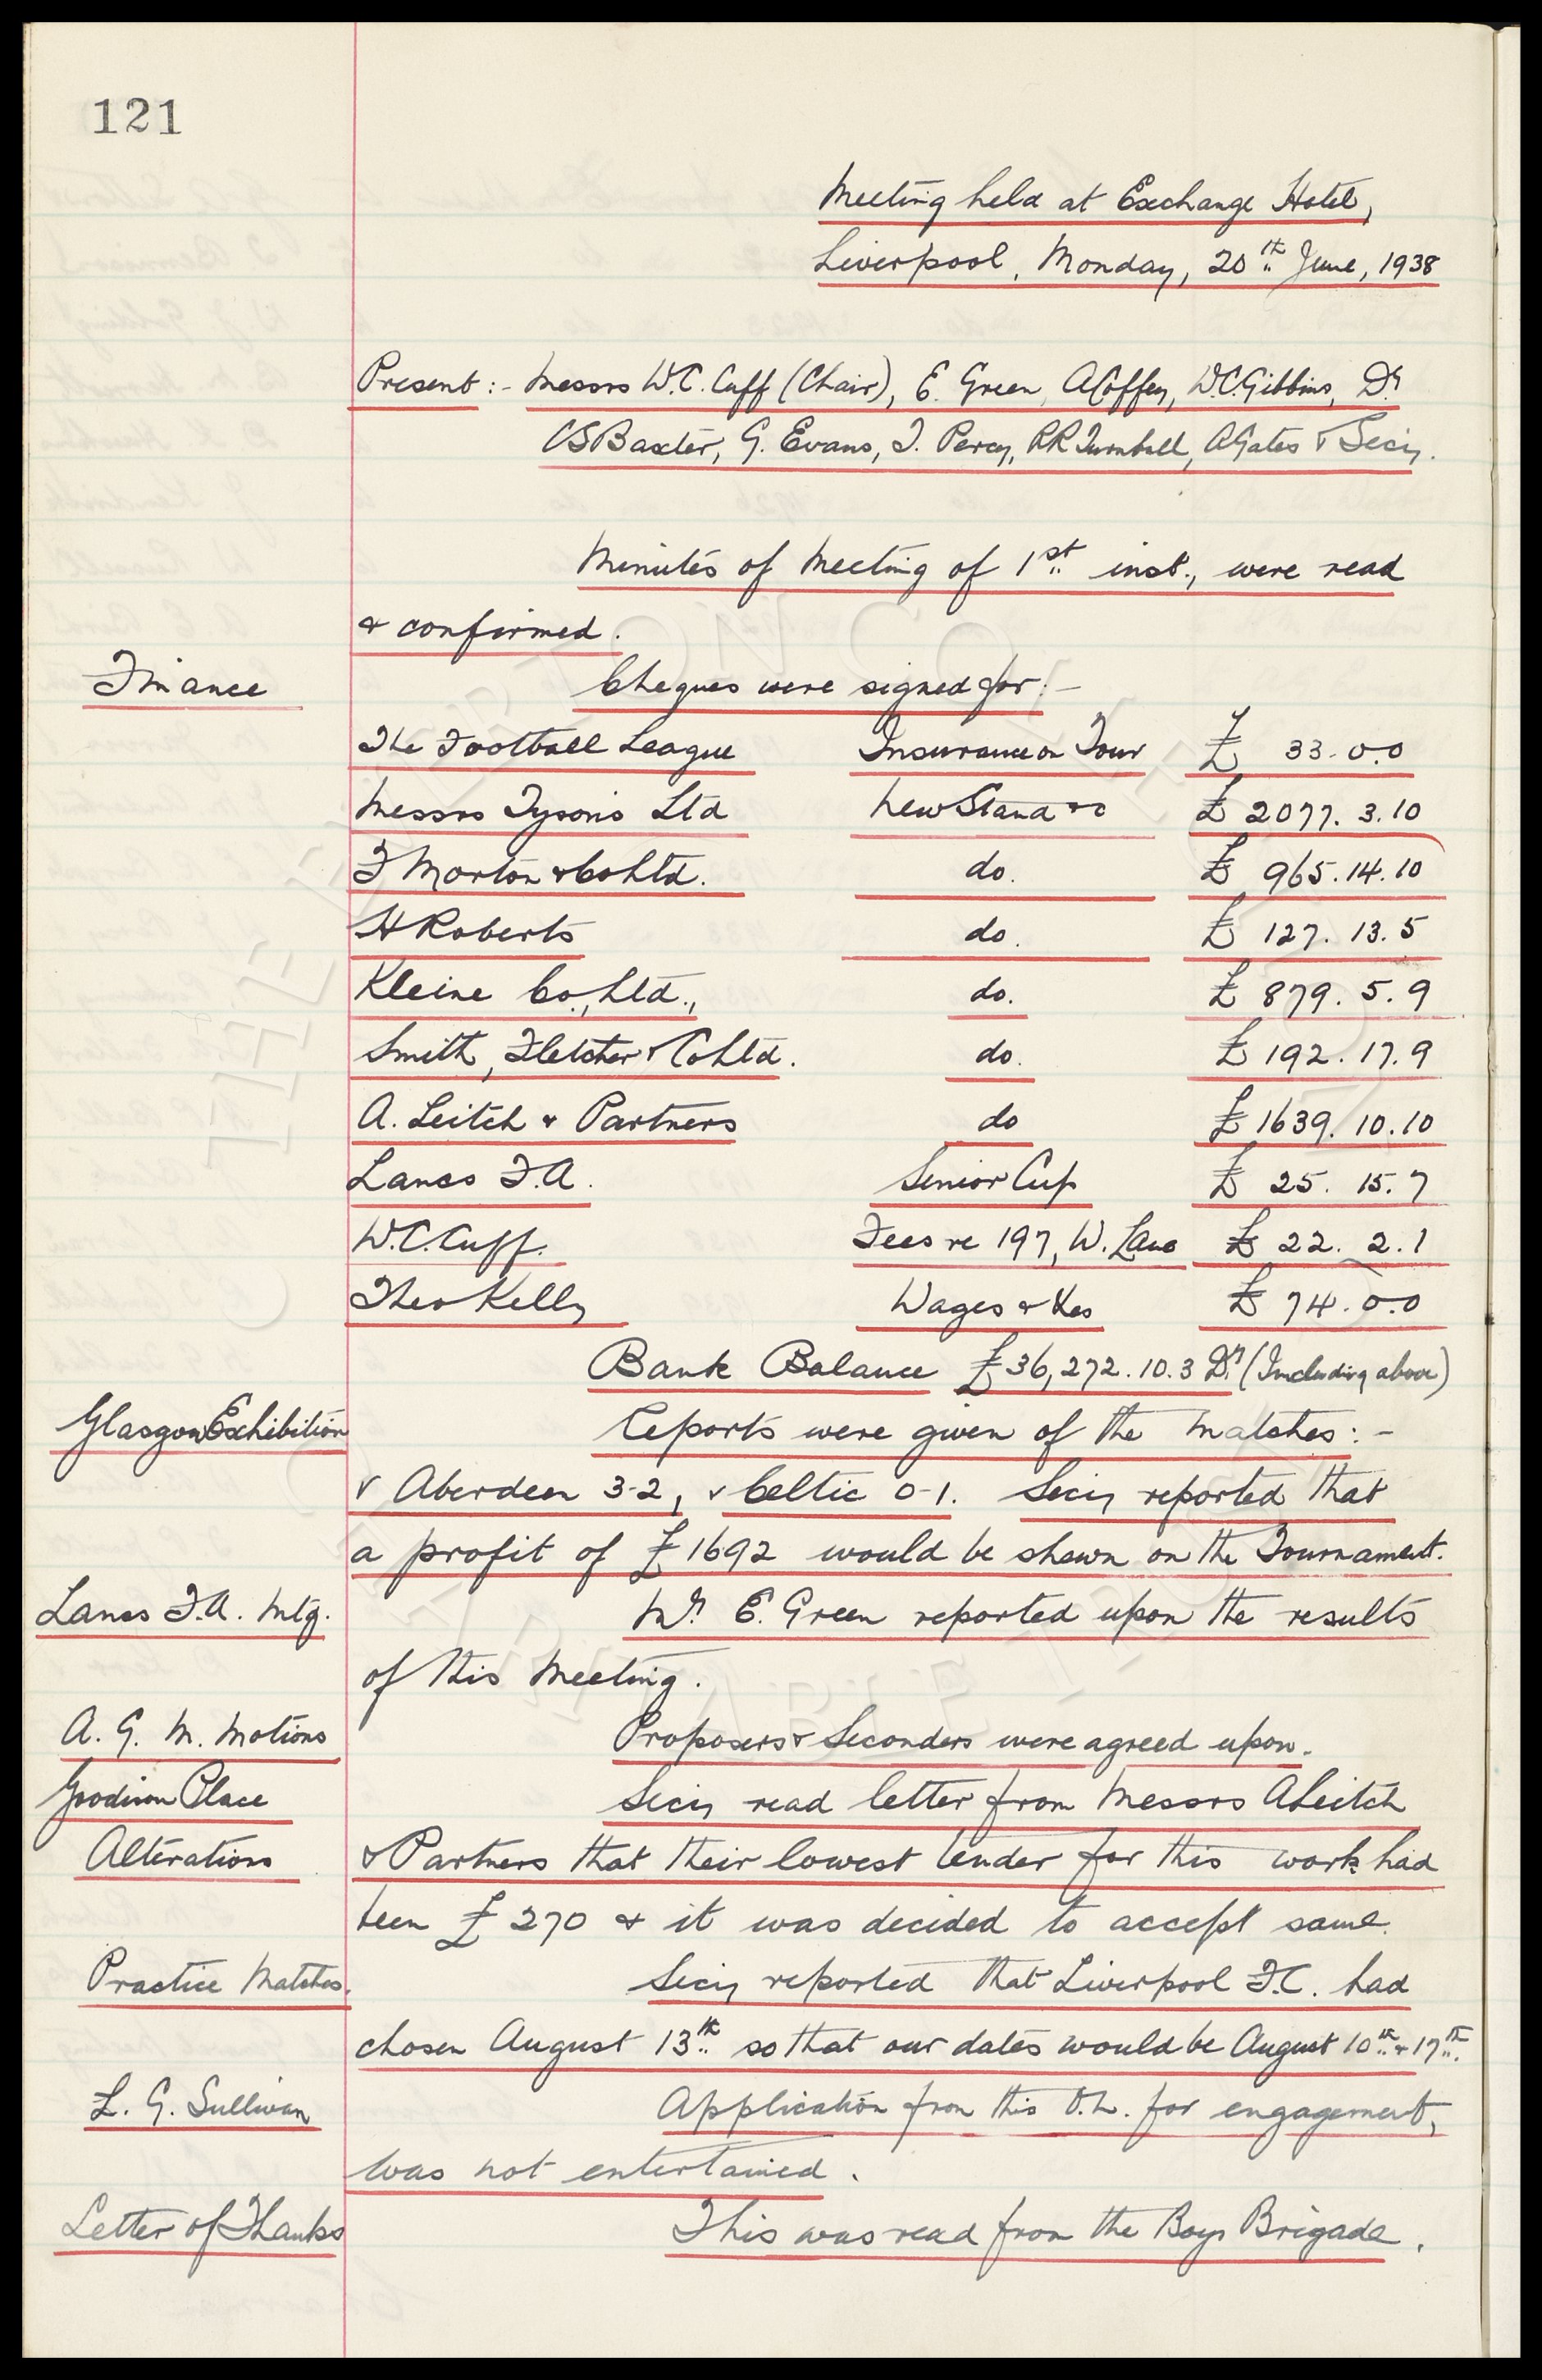 121
Meeting held at Exchange Hotel,
Liverpool, Monday, 20th June, 1938
Present :- Messrs W.C. Cuff (Chair), E. Green, A Coffey, W.C. Gibbins, Dr
CS Baxter, G. Evans, T. Percy, RR Turnbull, A Gates & Secy.
Minutes of Meeting of 1st inst., were read
& confirmed.
Finance
Cheques were signed for :-
The Football League Insurance on Tour £ 33.0.0
Messrs Tysons Ltd New Stand &c £ 2077. 3. 10
F Morton & Co Ltd. do. £ 965. 14. 10
H Roberts do. £ 127. 13. 5
Kleine Co., Ltd., do. £ 879. 5. 9
Smith, Fletcher & Co Ltd. do. £ 192. 17. 9
A. Leitch & Partners do £ 1639. 10. 10
Lancs F.A. Senior Cup £ 25. 15. 7
W.C. Cuff. Fees re 197, W. Lane £ 22. 2. 1
Theo Kelly Wages & Xes £ 74. 0.0
Bank Balance £36,272. 10. 3 Dr (Including above)
Glasgow Exhibition
Reports were given of the matches :-
v Aberdeen 3-2, v Celtic 0-1. Secy reported that
a profit of £1692 would be shewn on the Tournament.
Lancs F.A. Mtg.
Mr. E. Green reported upon the results
of this Meeting.
A. G. M. Motions
Proposers & Seconders were agreed upon.
Goodison Place
Alterations
Secy read letter from Messrs A Leitch
& Partners that their lowest tender for this work had
been £270 & it was decided to accept same.
Practice Matches.
Secy reported that Liverpool F.C. had
chosen August 13th so that our dates would be August 10th & 17th.
L. G. Sullivan
Application from this O.L. for engagement,
was not entertained.
Letter of Thanks
This was read from the Boys Brigade.